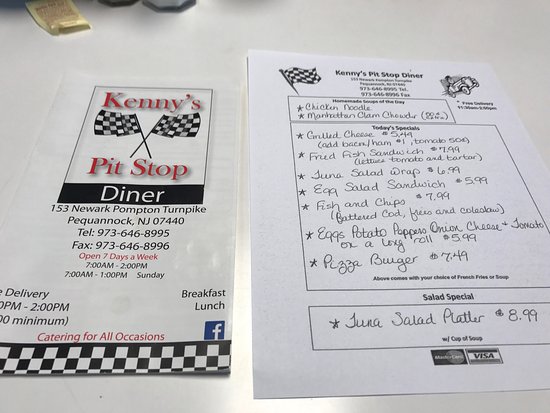 Kenny's
Pit Stop
Diner
153 Newark Pompton Turnpike
Pequannock, NJ 07440
Tel: 973-646-8995
Fax: 973-646-8996
Open 7 Days a Week
7:00AM - 2:00PM
7:00AM - 1:00PM Sunday
e Delivery
0PM - 2:00PM
00 minimum)
Breakfast
Lunch
f
Catering for All Occasions
Kenny's Pit Stop Diner
153 Newark Pompton Turnpike
Pequannock, NJ 07440
973-646-8995 Tel.
973-646-8996 Fax
Homemade Soups of the Day
* Chicken Noodle
* Manhattan Clam Chowder
* Free Delivery
11:30am-2:00pm
Today's Specials
* Grilled Cheese $5.49
(add bacon/ham $1, tomato 50¢)
* Fried Fish Sandwich $7.99
(lettuce tomato and tartar)
* Tuna Salad Wrap $6.99
* Egg Salad Sandwich $5.99
* Fish and Chips $7.99
(battered Cod, fries and coleslaw)
* Eggs Potato Peppers Onion Cheese + Tomato
on a long roll $5.99
* Pizza Burger $7.49
Above comes with your choice of French Fries or Soup
Salad Special
* Tuna Salad Platter $8.99
w/ Cup of Soup
MasterCard
VISA